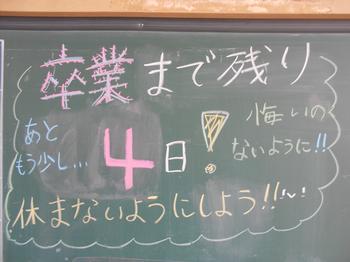 卒業まで残り
あと
もう少し...
4日!
悔いの
ないように!!
休まないようにしよう!!